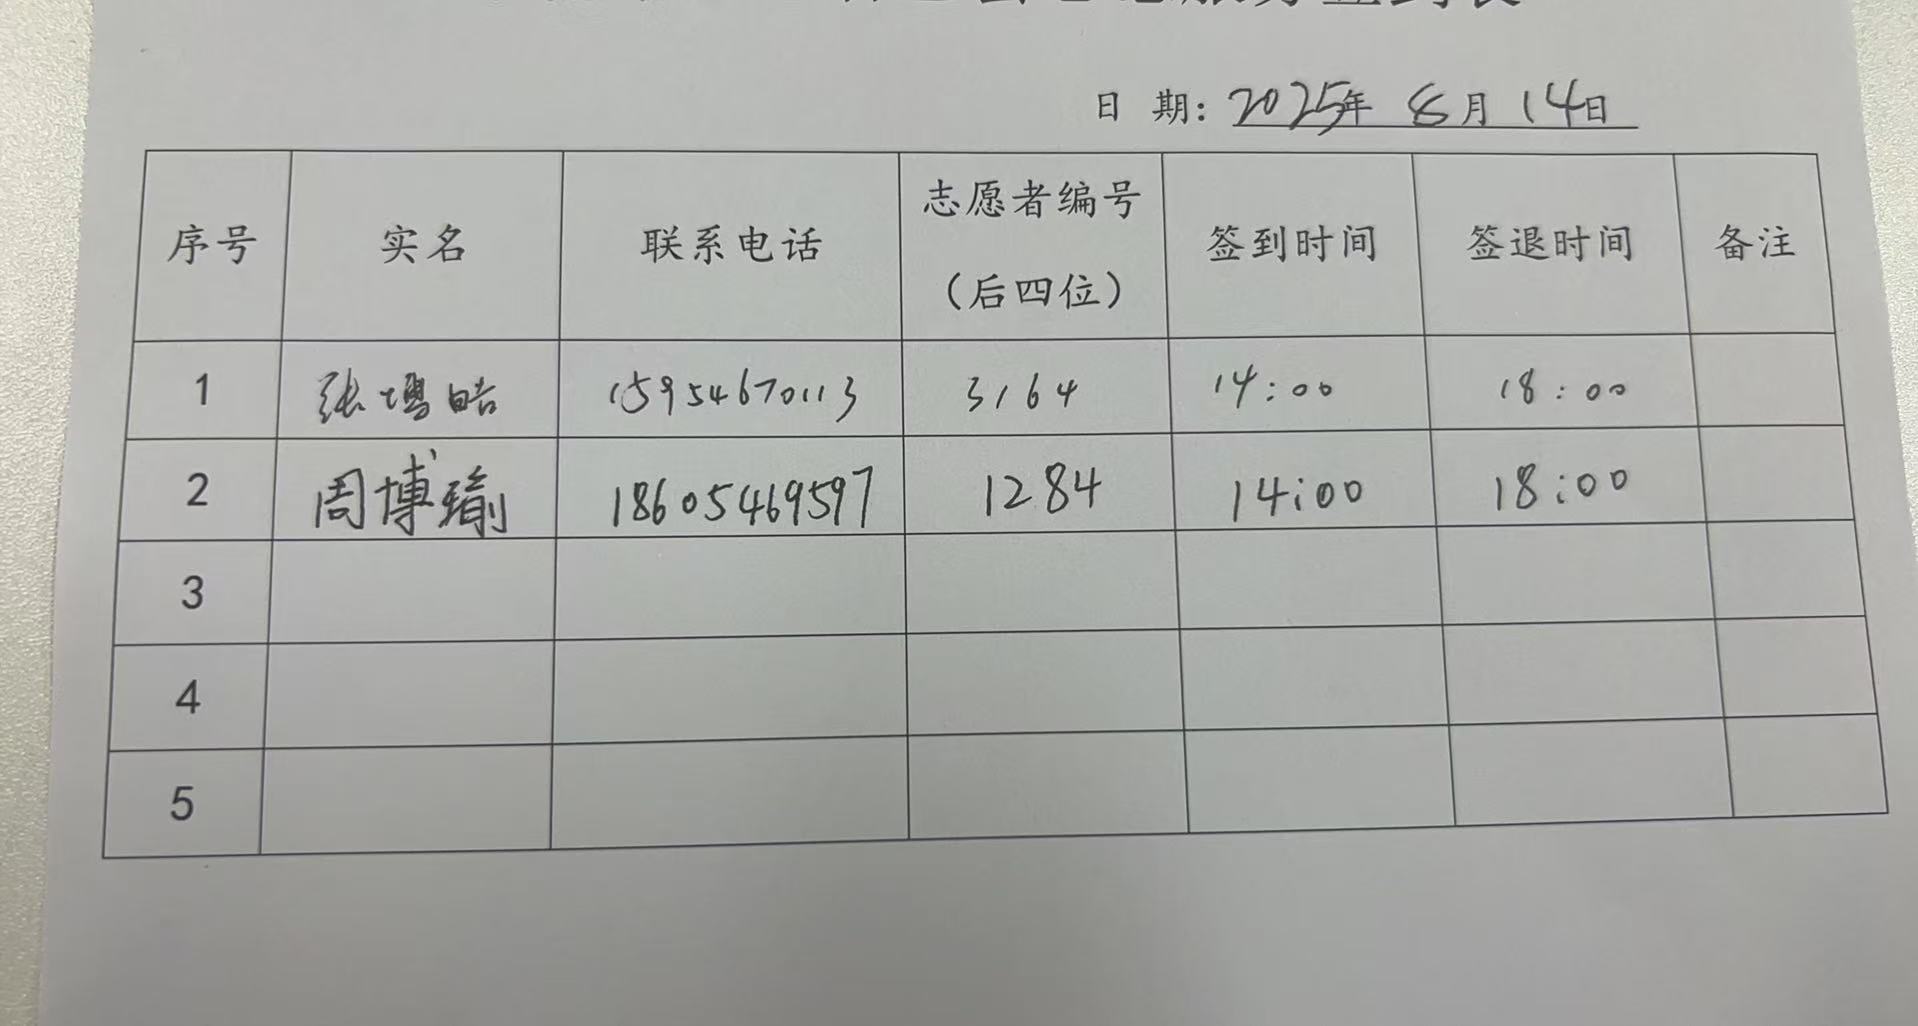 日 期: 2025年 8月 14日
序号 实名 联系电话 志愿者编号（后四位） 签到时间 签退时间 备注
1 张博皓 15954670113 3164 14:00 18:00
2 周博瑜 18605469597 1284 14:00 18:00
3
4
5